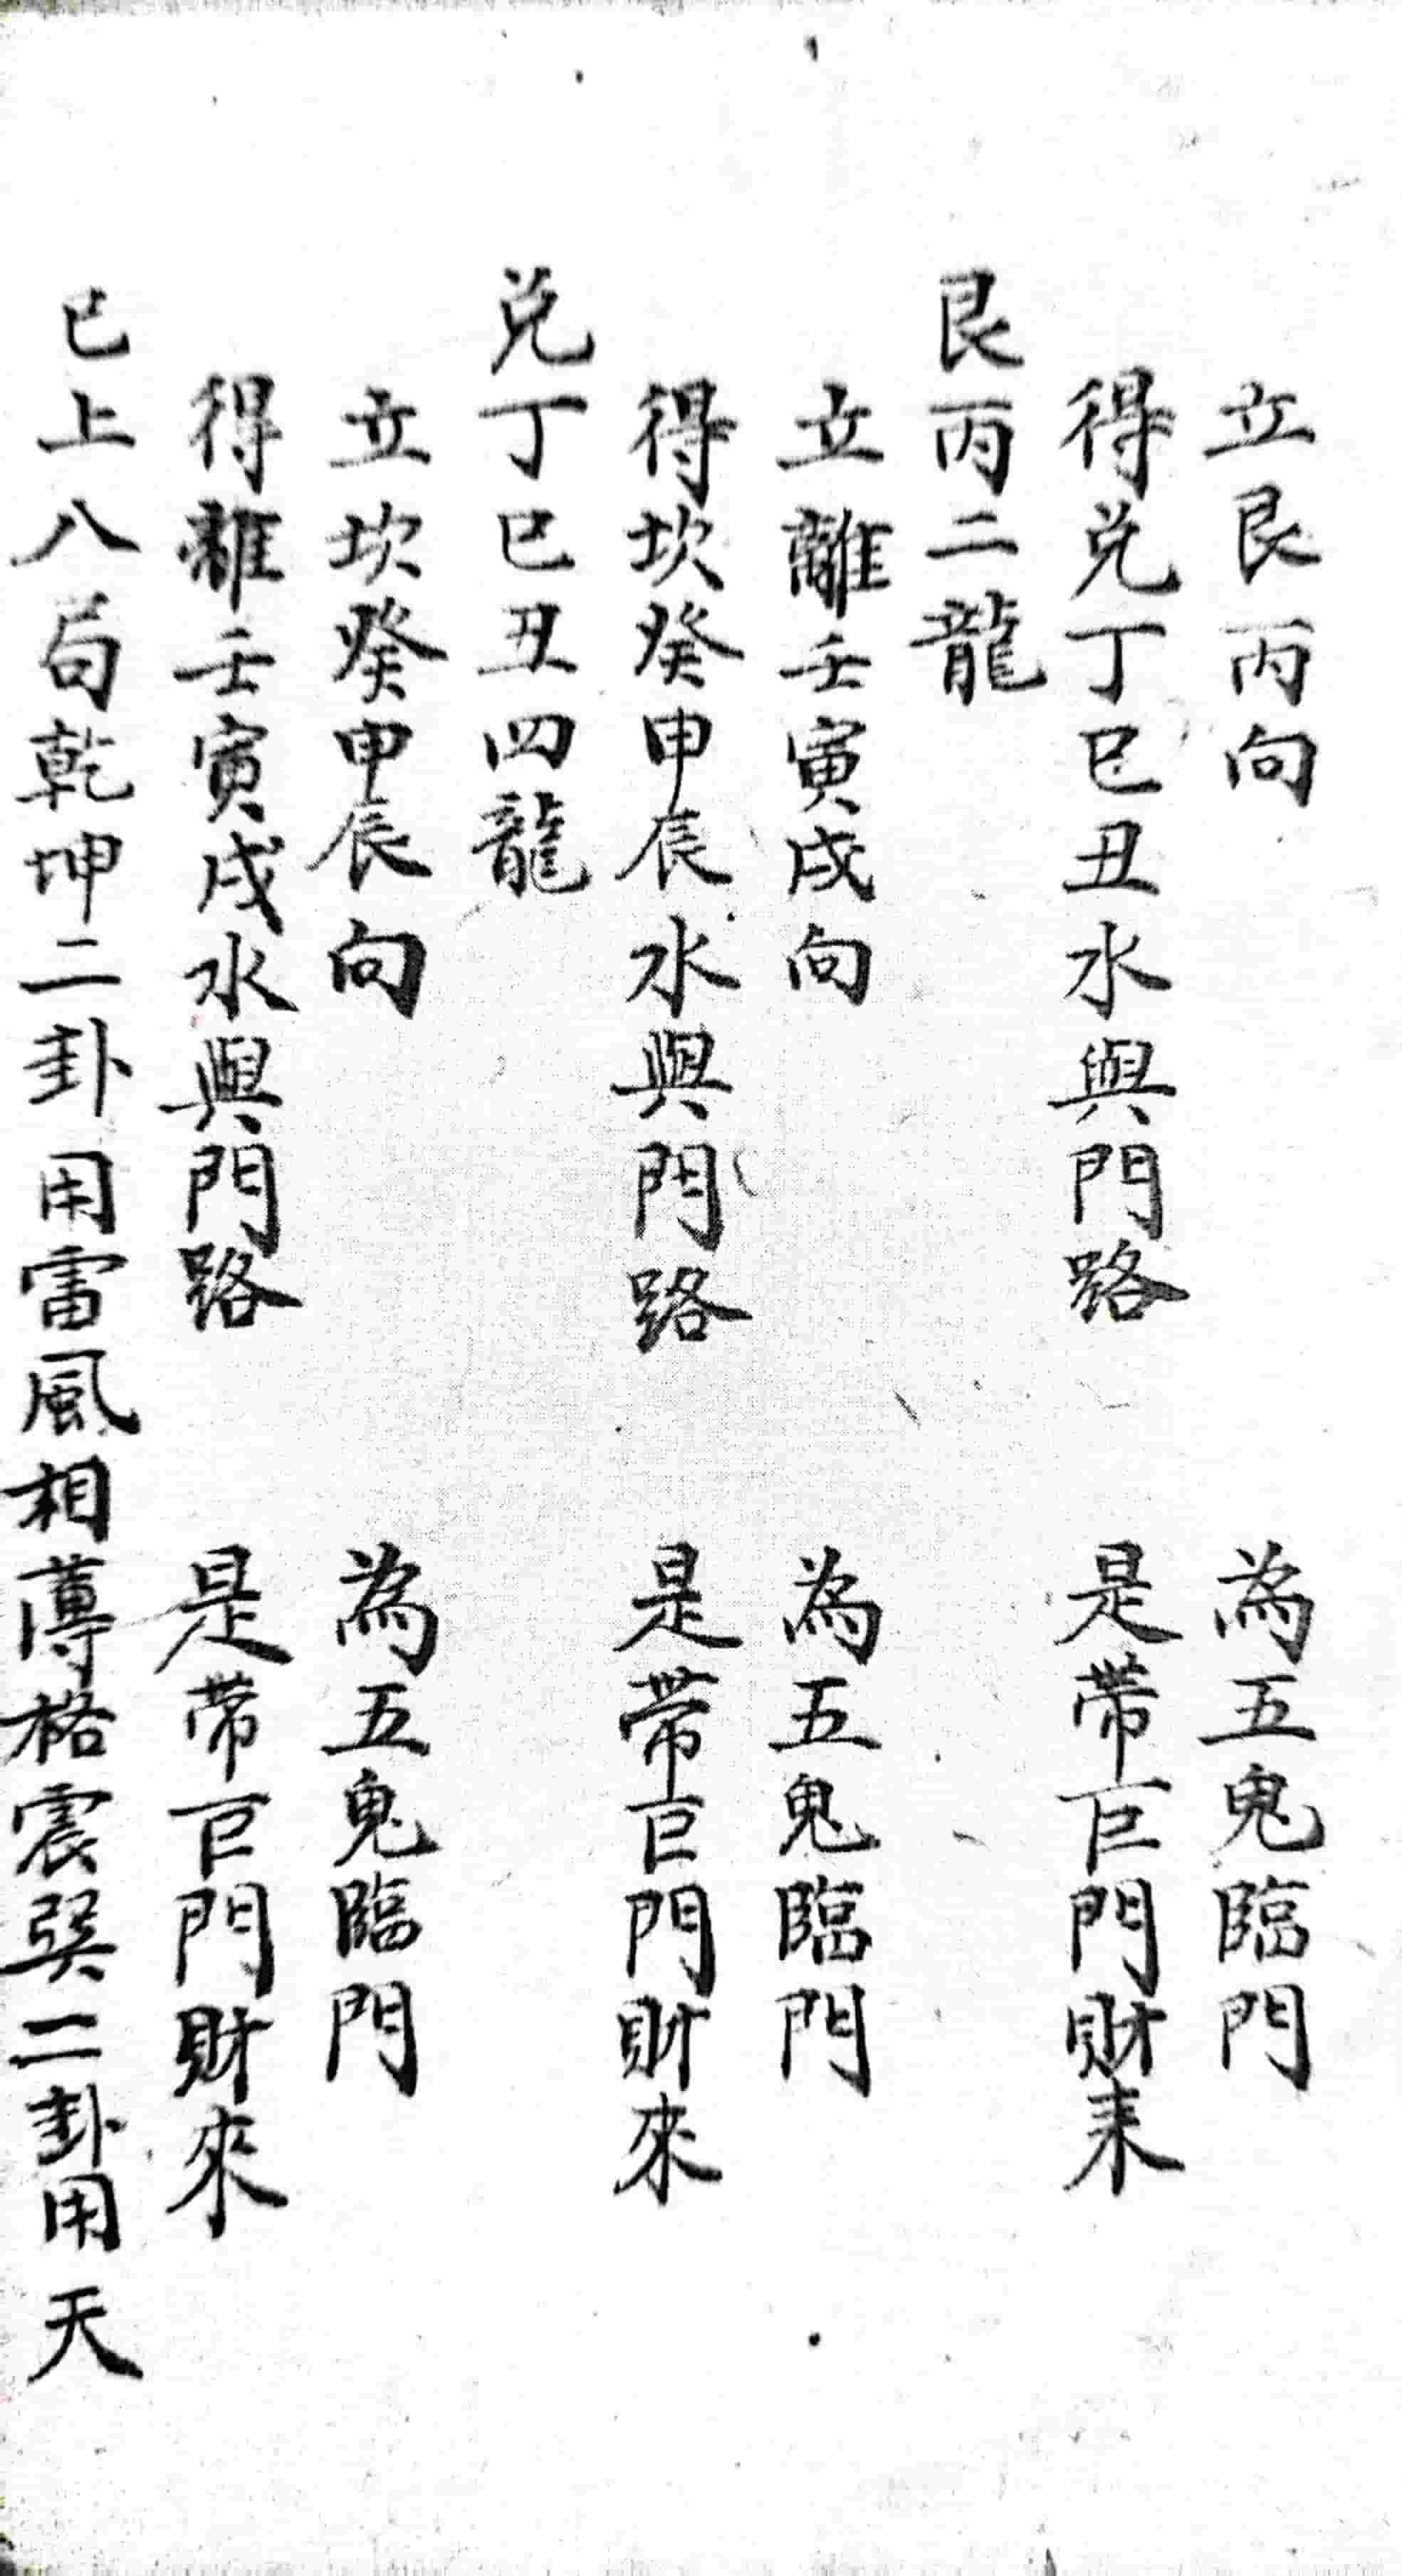 立艮丙向　為五鬼臨門
得兑丁巳丑水與門路　是帶巨門財来
艮丙二龍
立離壬寅戌向　為五鬼臨門
得坎癸申辰水與門路　是帶巨門財來
兑丁巳丑四龍
立坎癸申辰向　為五鬼臨門
得離壬寅戌水與門路　是帶巨門財來
已上八局乾坤二卦用雷風相薄格震巽二卦用天